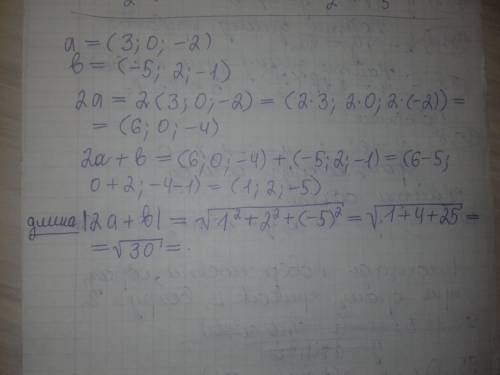 a = (3; 0; -2)
b = (-5; 2; -1)
2a = 2(3; 0; -2) = (2·3; 2·0; 2·(-2)) =
= (6; 0; -4)
2a + b = (6; 0; -4) + (-5; 2; -1) = (6-5;
0+2; -4-1) = (1; 2; -5)
длина |2a + b| = √1² + 2² + (-5)² = √1+4+25 =
= √30 =